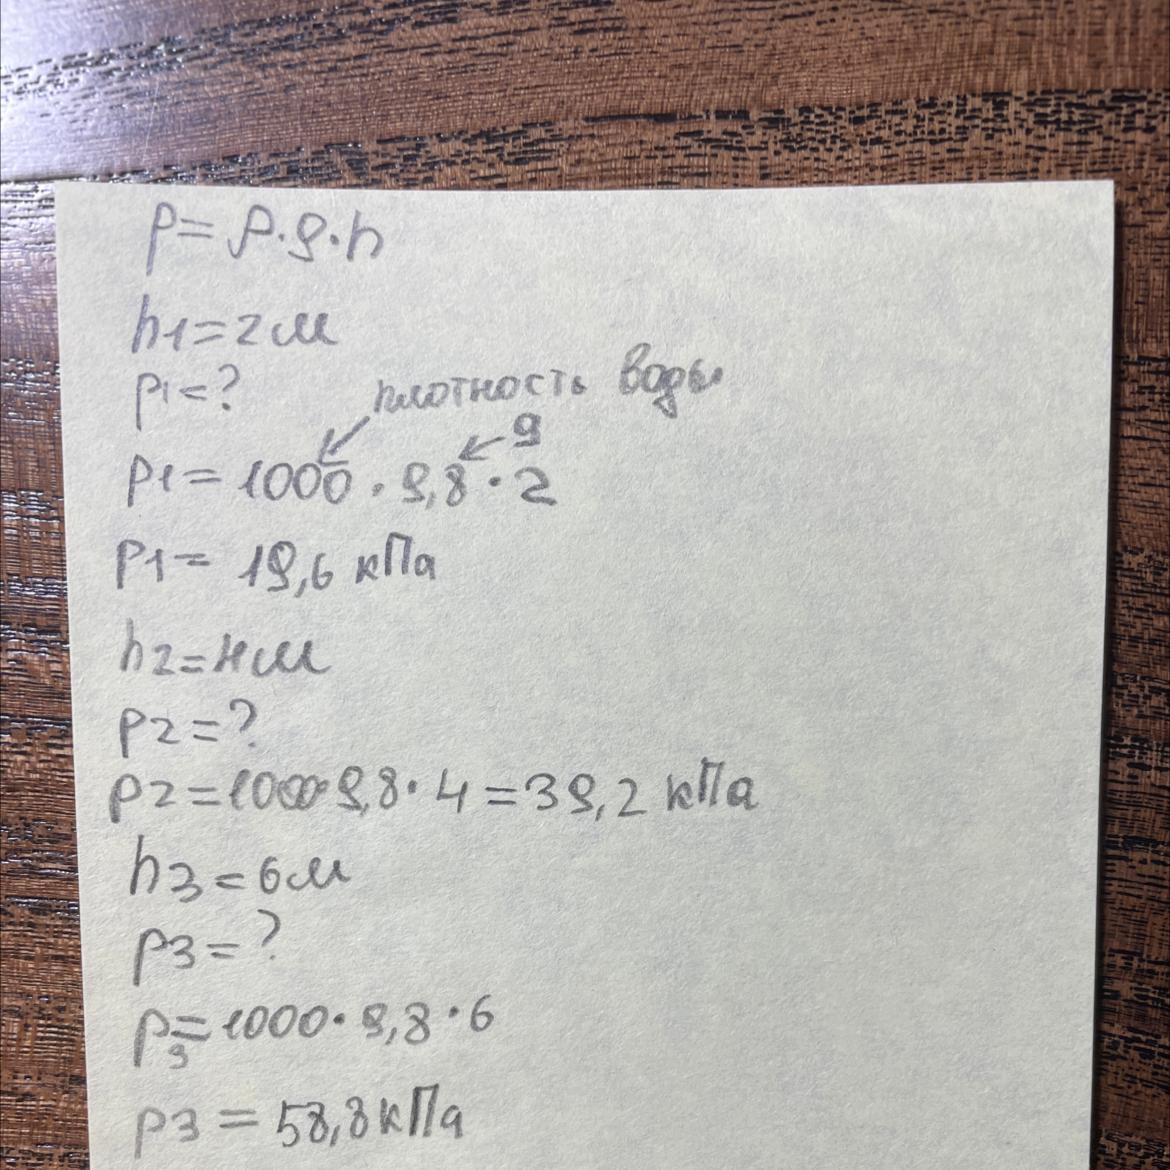 p = ρ·g·h
h1 = 2 м
p1 = ?
плотность воды
g
p1 = 1000 · 9,8 · 2
p1 = 19,6 кПа
h2 = 4 м
p2 = ?
p2 = 1000·9,8·4 = 39,2 кПа
h3 = 6 м
p3 = ?
p3 = 1000·9,8·6
p3 = 58,8 кПа